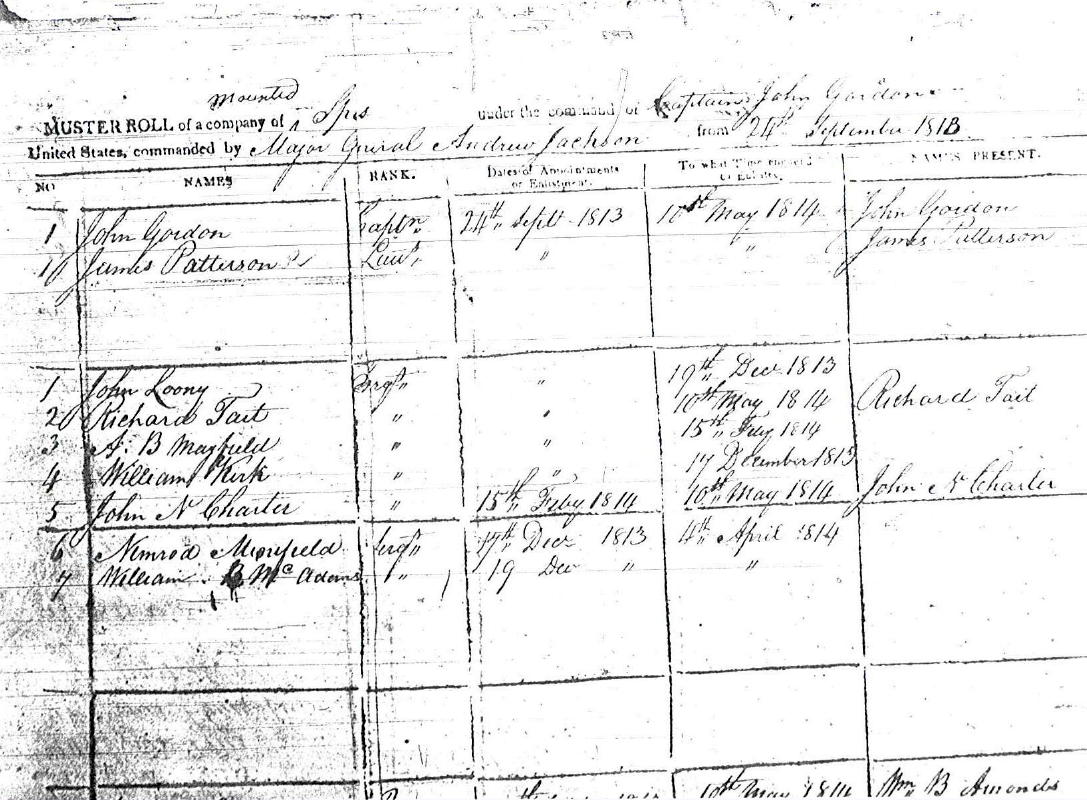 mounted
MUSTER ROLL of a company of Spies under the command of Captain John Gordon
United States, commanded by Major Genral Andrew Jackson from 24th September 1813
NO NAMES RANK. Dates of Appointments or Enlistment. To what Time engaged or Enlisted. NAMES PRESENT.
1 John Gordon Captn. 24th Sept 1813 10th May 1814 John Gordon
1 James Patterson Lieut. " " James Patterson
1 John Loony Sergt " " 19th Decr 1813
2 Richard Tait " " 10th May 1814 Richard Tait
3 A. B Mayfield " " 15th Feby 1814
4 William Kirk " " 17 December 1813
5 John N Charter " 15th Feby 1814 10th May 1814 John N Charter
6 Nimrod Sergt " 17th Decr 1813 4th April 1814
7 William B McAdams " 19 Dec " "
10th May 1814 Wm B Amonds